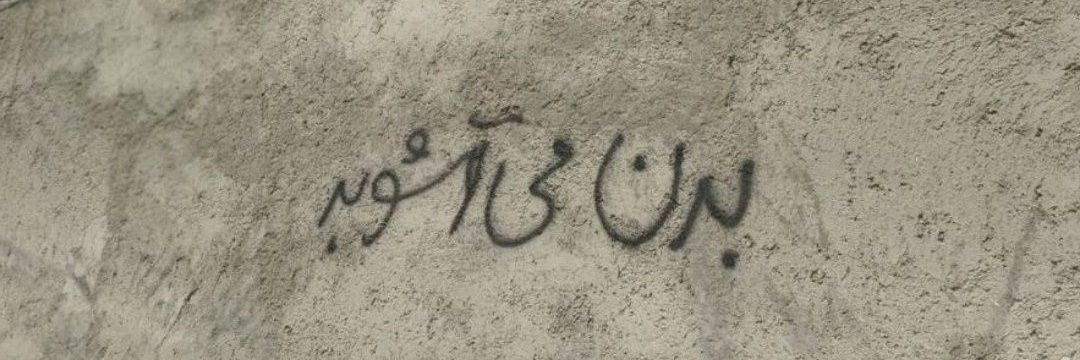 بدن می‌آشوبد